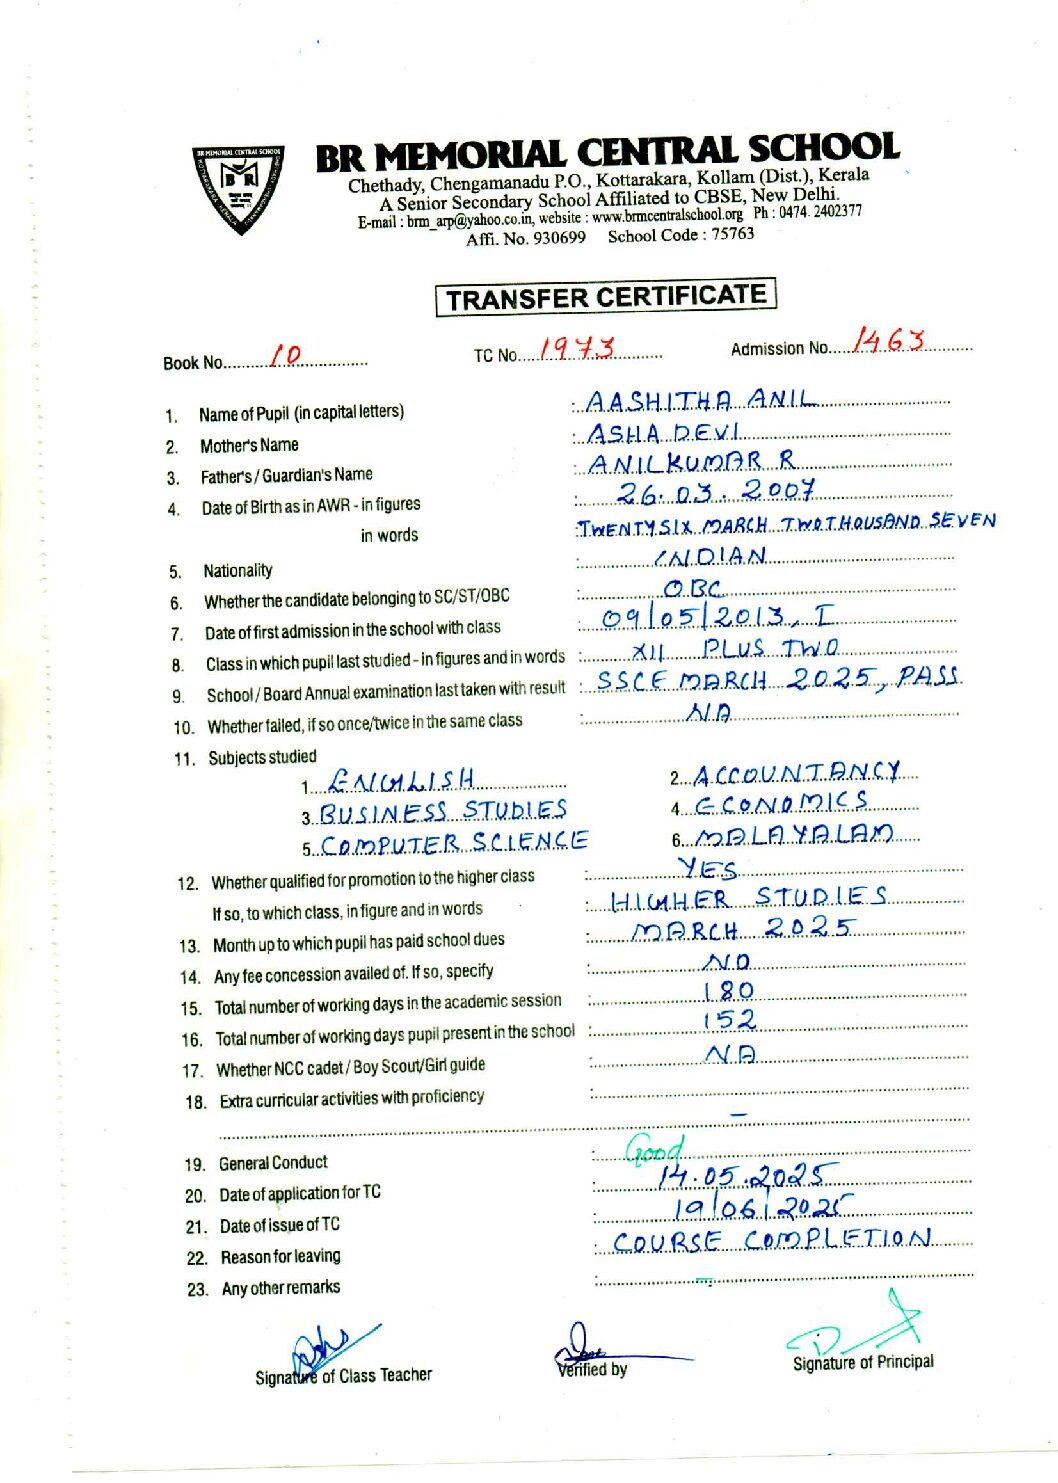 BR MEMORIAL CENTRAL SCHOOL
BR MEMORIAL CENTRAL SCHOOL
B R
Chethady, Chengamanadu P.O., Kottarakara, Kollam (Dist.), Kerala
A Senior Secondary School Affiliated to CBSE, New Delhi.
E-mail : brm_arp@yahoo.co.in, website : www.brmcentralschool.org Ph : 0474. 2402377
Affi. No. 930699 School Code : 75763
TRANSFER CERTIFICATE
Book No. 10 TC No. 1973 Admission No. 1463
1. Name of Pupil (in capital letters) : AASHITHA ANIL
2. Mother's Name : ASHA DEVI
3. Father's / Guardian's Name : ANILKUMAR R
4. Date of Birth as in AWR - in figures : 26.03.2007
in words : TWENTYSIX MARCH TWOTHOUSAND SEVEN
5. Nationality : INDIAN
6. Whether the candidate belonging to SC/ST/OBC : OBC
7. Date of first admission in the school with class : 09/05/2013, I
8. Class in which pupil last studied - in figures and in words : XII PLUS TWO
9. School / Board Annual examination last taken with result : SSCE MARCH 2025, PASS
10. Whether failed, if so once/twice in the same class : NA
11. Subjects studied
1. ENGLISH 2. ACCOUNTANCY
3. BUSINESS STUDIES 4. ECONOMICS
5. COMPUTER SCIENCE 6. MALAYALAM
12. Whether qualified for promotion to the higher class : YES
If so, to which class, in figure and in words : HIGHER STUDIES
13. Month up to which pupil has paid school dues : MARCH 2025
14. Any fee concession availed of. If so, specify : NO
15. Total number of working days in the academic session : 180
16. Total number of working days pupil present in the school : 152
17. Whether NCC cadet / Boy Scout/Girl guide : NA
18. Extra curricular activities with proficiency :
–
19. General Conduct : Good
20. Date of application for TC : 14.05.2025
21. Date of issue of TC : 19/06/2025
22. Reason for leaving : COURSE COMPLETION
23. Any other remarks : –
Signature of Class Teacher Verified by Signature of Principal